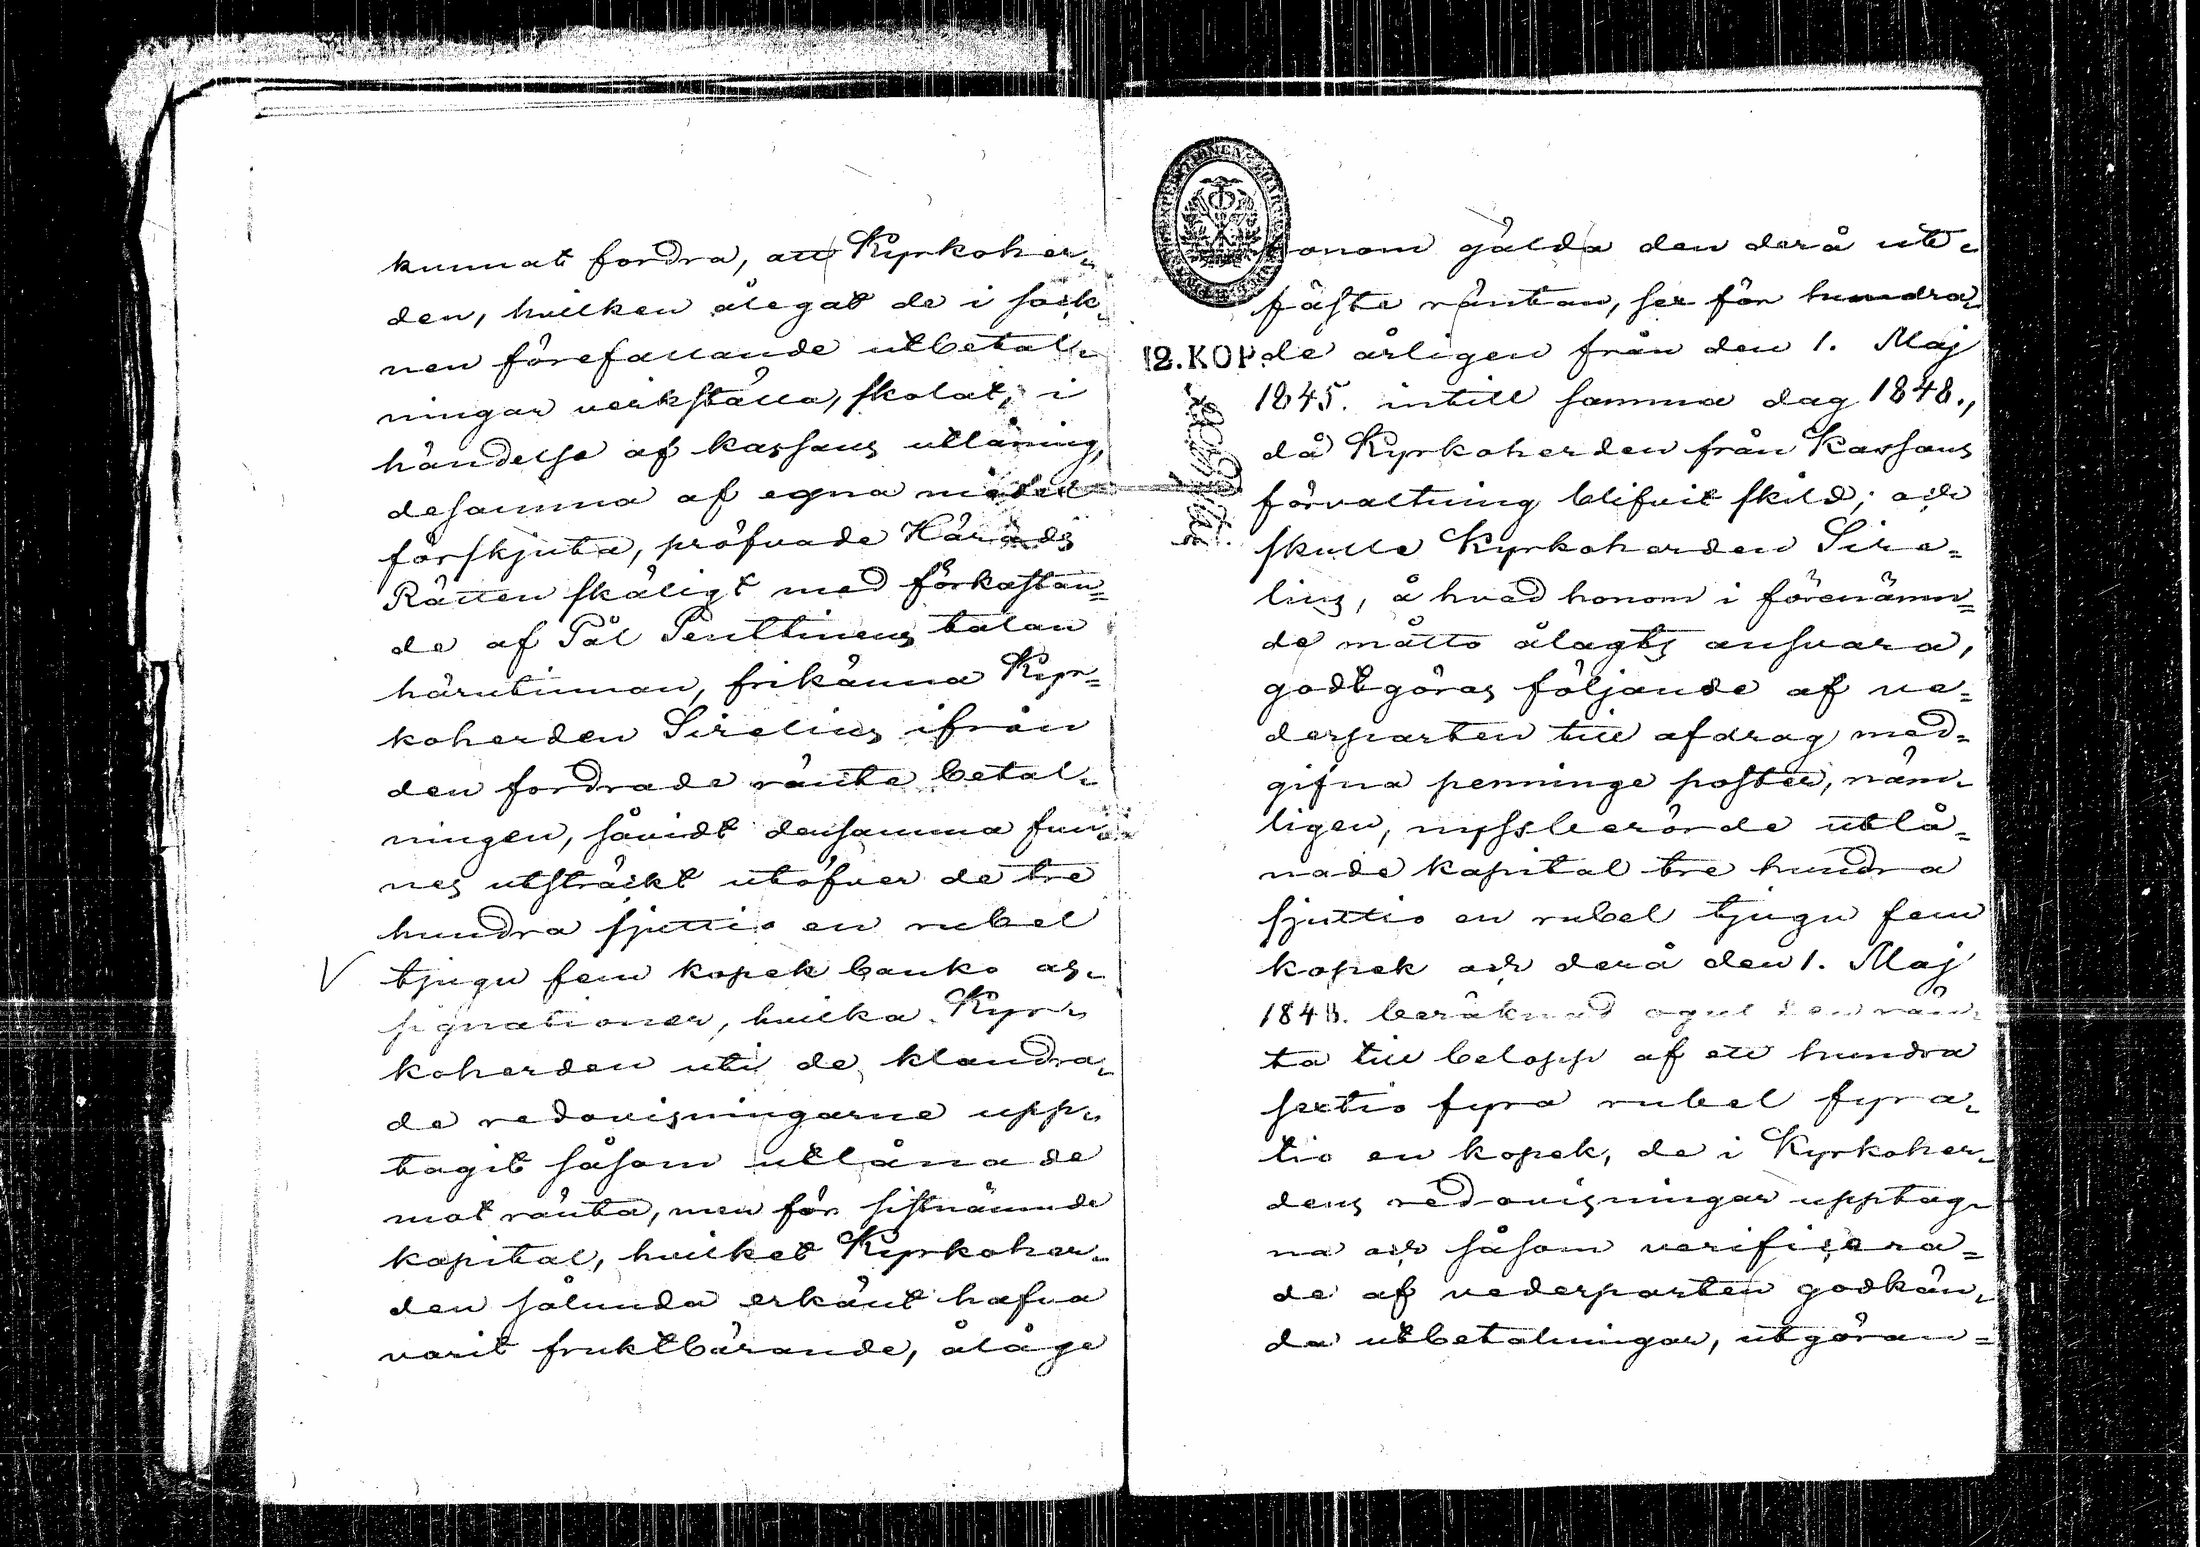 kunnat fordra, att Kyrkoher-
den, hvilken ålegat de i sock-
nen förefallande utbetal-
ningar verkställa, skolat, i
händelse af kassans utlåning,
desamma af egna medel
förskjuta, pröfvade Härads
Rätten skäligt med förkastan=
de af Pål Penttinens talan
härutinnan, frikänna Kyr=
koherden Sirelius ifrån
den fordrade ränte betal-
ningen, såvidt densamma fun-
nes utsträckt utöfver de tre
hundra sjuttio en rubel
V tjugu fem kopek banko as-
signationer, hvilka Kyr-
koherden uti de klandra-
de redovisningarne upp-
tagit såsom utlånade
mot ränta, men för sistnämnde
kapital, hvilket Kyrkoher-
den sålunda erkänt hafva
varit fruktbärande, ålåge
honom gälda den derå ut-
fäste räntan, sex för hundra-
12. KOP. de årligen från den 1. Maj
1845. intill samma dag 1848.,
då Kyrkoherden från Kassans
förvaltning blifvit skild; och
skulle Kyrkoherden Sire=
lius, å hvad honom i förenämn=
de måtto ålagts ansvara,
godtgöras följande af ve=
derparten till afdrag med=
gifna penninge poster, näm-
ligen, nyssberörde utlå=
nade kapital tre hundra
sjuttio en rubel tjugu fem
kopek och derå den 1. Maj
1848. beräknad ogulden rän-
ta till belopp af ett hundra
sextio fyra rubel fyra-
tio en kopek, de i Kyrkoher-
dens redovisningar upptag-
na och såsom verificera=
de af vederparten godkän-
da utbetalningar, utgöran=